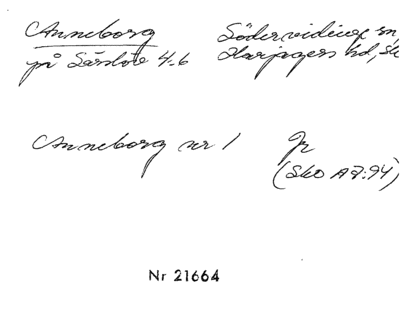 Anneborg Södervidinge sn,
på Särslöv 4-6 Harjagers hd, Sk
Anneborg nr 1 Jr
(Sko A 7:94)
Nr 21664